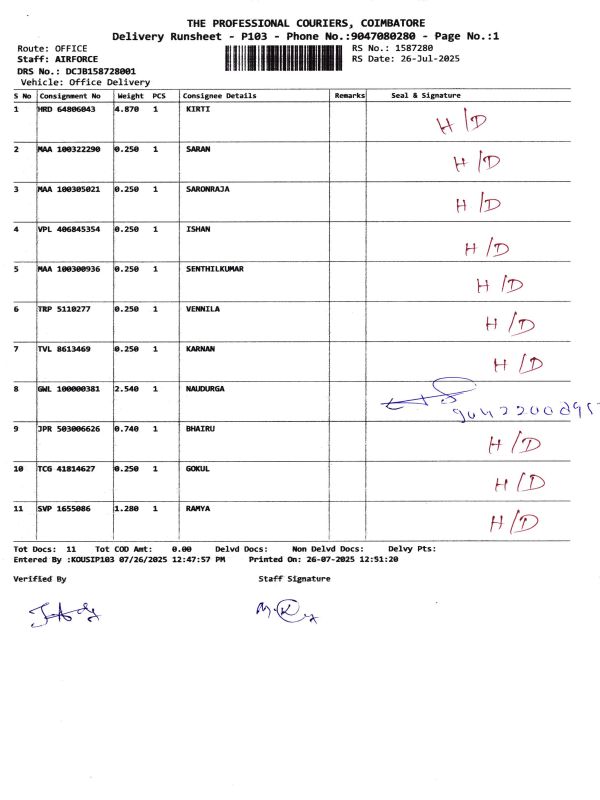 THE PROFESSIONAL COURIERS, COIMBATORE
Delivery Runsheet - P103 - Phone No.:9047080280 - Page No.:1
Route: OFFICE RS No.: 1587280
Staff: AIRFORCE RS Date: 26-Jul-2025
DRS No.: DCJB158728001
Vehicle: Office Delivery
S No Consignment No Weight PCS Consignee Details Remarks Seal & Signature
1 HRD 64806043 4.870 1 KIRTI H/D
2 MAA 100322290 0.250 1 SARAN H/D
3 MAA 100305021 0.250 1 SARONRAJA H/D
4 VPL 406845354 0.250 1 ISHAN H/D
5 MAA 100300936 0.250 1 SENTHILKUMAR H/D
6 TRP 5110277 0.250 1 VENNILA H/D
7 TVL 8613469 0.250 1 KARNAN H/D
8 GWL 100000381 2.540 1 NAUDURGA
9 JPR 503006626 0.740 1 BHAIRU H/D
10 TCG 41814627 0.250 1 GOKUL H/D
11 SVP 1655086 1.280 1 RAMYA H/D
Tot Docs: 11 Tot COD Amt: 0.00 Delvd Docs: Non Delvd Docs: Delvy Pts:
Entered By :KOUSIP103 07/26/2025 12:47:57 PM Printed On: 26-07-2025 12:51:20
Verified By Staff Signature